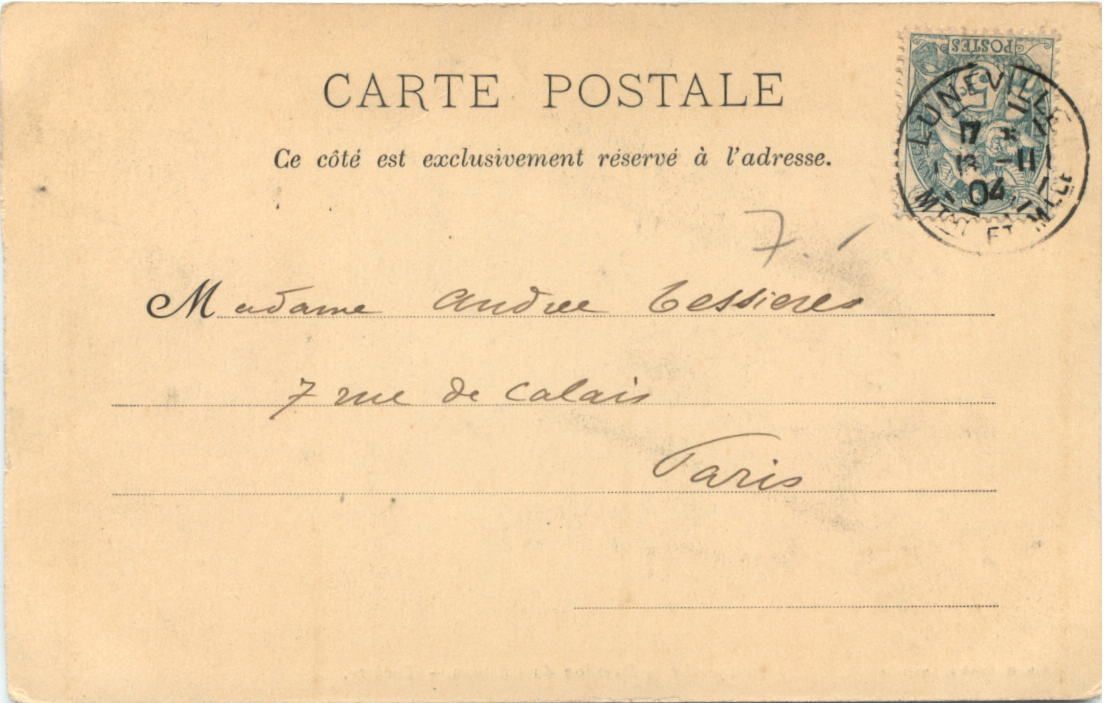 POSTES
CARTE POSTALE
LUNÉVILLE
17
-11
04
MTHE ET MLLE
Ce côté est exclusivement réservé à l'adresse.
7.
Madame Andree Tessieres
7 rue de Calais
Paris